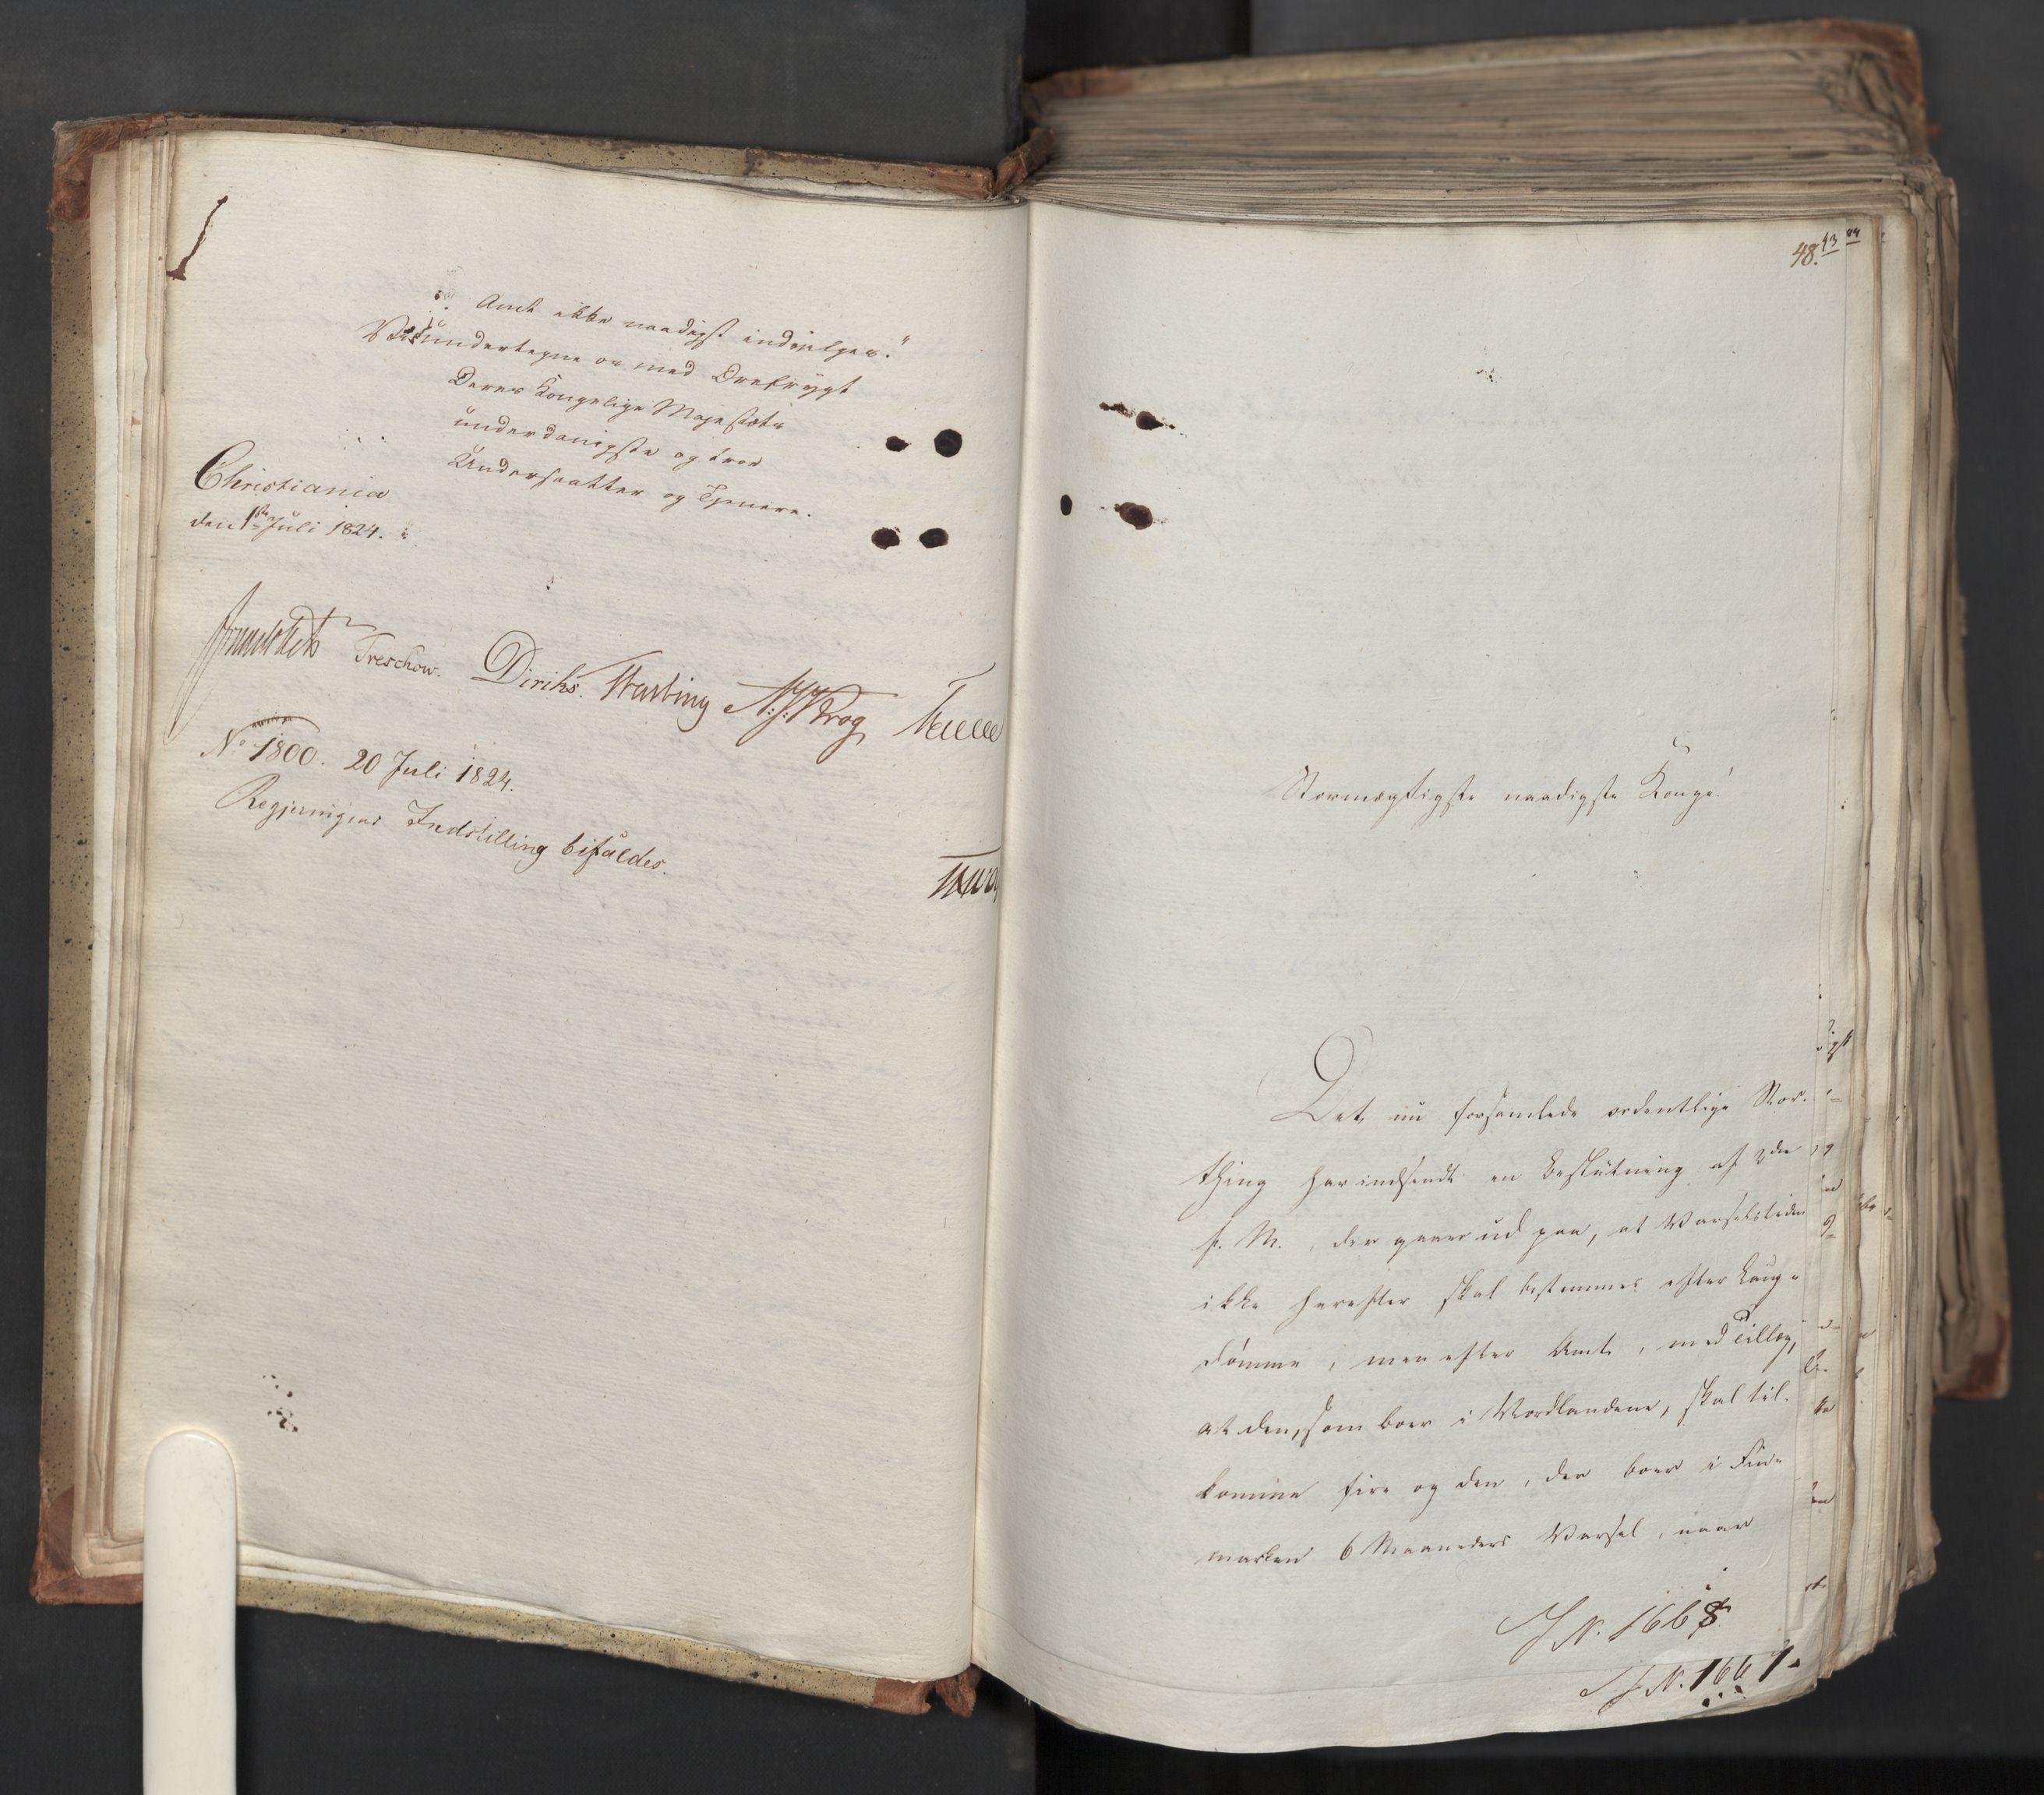 Amt ikke naadigst indvilges."
Vi undertegne os med Ærefrygt
Deres Kongelige Majestæts
underdanigste og troe
Undersaatter og Tjenere.
Christiania
den 1ste Juli 1824.
Treschow. Diriks. N:J:Krog
No 1800. 20 Juli 1824.
Regjeringens Indstilling bifaldes.
48.
Stormægtigste naadigste Konge!
Det nu forsamlede ordentlige Stor-
thing har indsendt en Beslutning af
f. M., der gaaer ud paa, at Varselstiden
ikke herefter skal bestemmes efter Laug-
dømme, men efter Amt, med Tillæg,
at den, som boer i Nordlandene, skal til-
komme fire og den, der boer i Fin-
marken 6 Maaneders Varsel, naar
J N. 1668
J N. 1667.